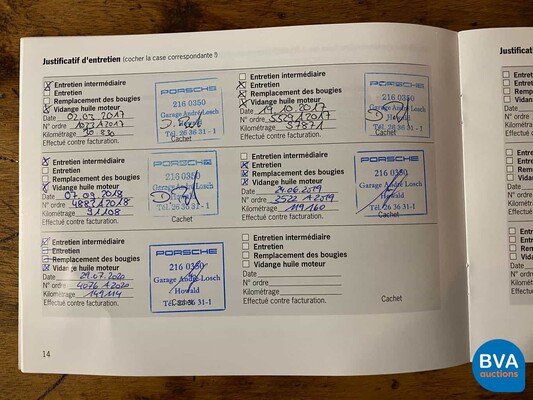 Justificatif d'entretien (cocher la case correspondante !)
Entretien intermédiaire
Entretien
Remplacement des bougies
Vidange huile moteur
Date 02.03.2017
N° ordre
Kilométrage
Effectué contre facturation.
PORSCHE
216 0350
Garage André Losch
Howald
Tél. 26 36 31 - 1
Cachet
Entretien intermédiaire
Entretien
Remplacement des bougies
Vidange huile moteur
Date 19.10.2017
N° ordre
Kilométrage
Effectué contre facturation.
PORSCHE
216 0350
Garage André Losch
Howald
Tél. 26 36 31 - 1
Entretien intermédiaire
Entretien
Remplacement des bougies
Vidange huile moteur
Date 07.09.2018
N° ordre 4882A2018
Kilométrage 91108
Effectué contre facturation.
PORSCHE
216 0350
Garage André Losch
Howald
Tél. 26 36 31 - 1
Cachet
Entretien intermédiaire
Entretien
Remplacement des bougies
Vidange huile moteur
Date 24.06.2019
N° ordre 3522 A2019
Kilométrage 119160
Effectué contre facturation.
PORSCHE
216 0350
Garage André Losch
Howald
Tél. 26 36 31 - 1
Cachet
Entretien intermédiaire
Entretien
Remplacement des bougies
Vidange huile moteur
Date 29.07.2020
N° ordre 4076 A2020
Kilométrage 149114
Effectué contre facturation.
PORSCHE
216 0350
Garage André Losch
Howald
Tél. 26 36 31-1
Cachet
Entretien intermédiaire
Entretien
Remplacement des bougies
Vidange huile moteur
Date
N° ordre
Kilométrage
Effectué contre facturation.
Cachet
14
Justificati
Entret
Entret
Remp
Vidan
Date
N° ordre
Kilométra
Effectué
BVA
auctions